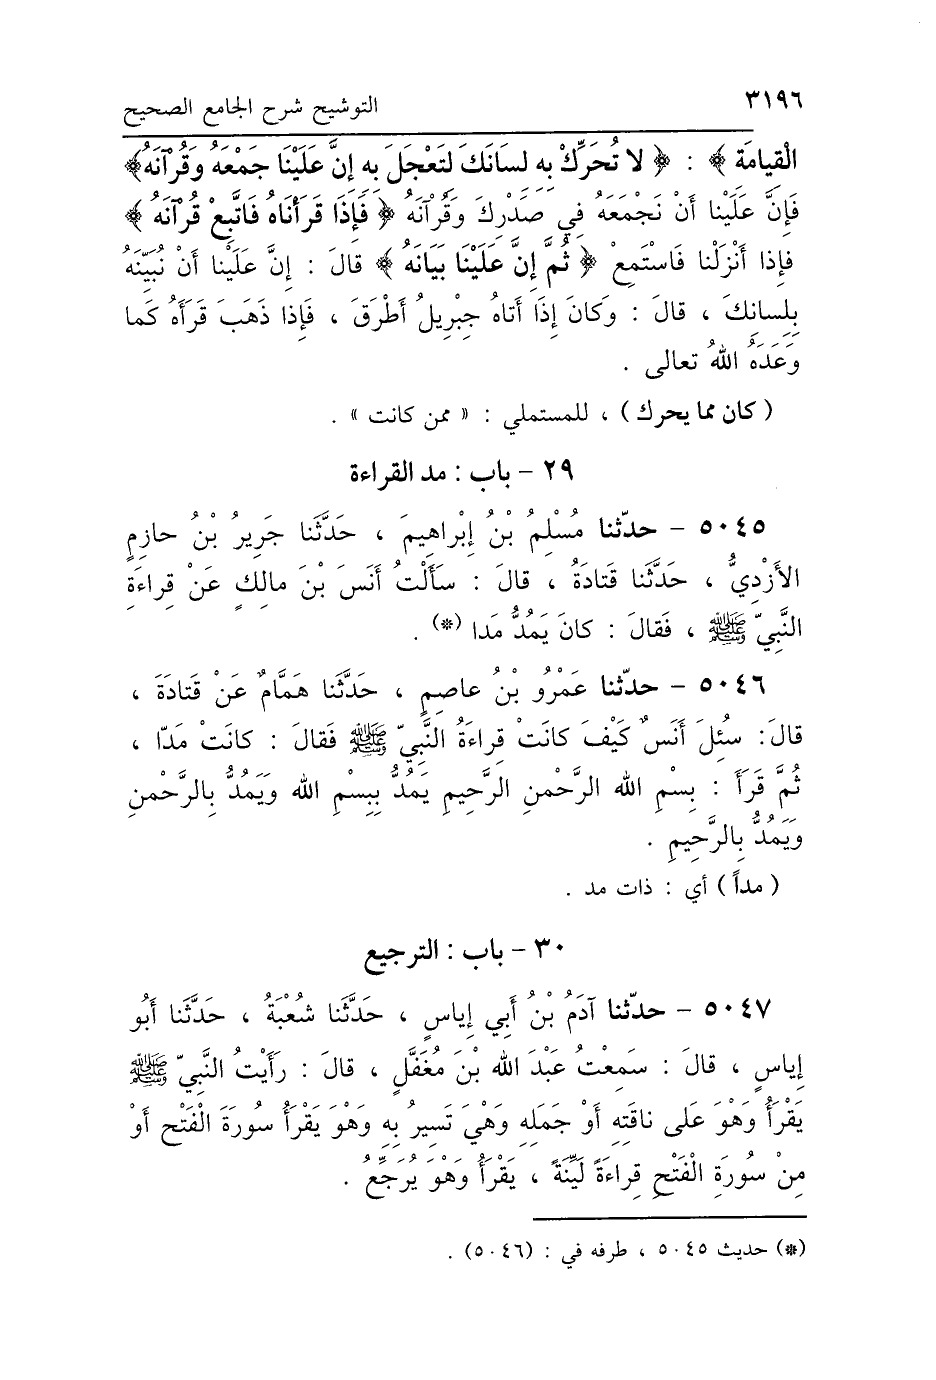 ٣١٩٦ التوشيح شرح الجامع الصحيح
الْقيامَة ﴾ : ﴿ لا تُحَرِّكْ بِهِ لِسَانَكَ لِتَعْجَلَ بِهِ إِنَّ عَلَيْنَا جَمْعَهُ وَقُرْآنَهُ﴾
فَإِنَّ عَلَيْنا أَنْ نَجْمَعَهُ فِي صَدْرِكَ وَقُرْآنَهُ ﴿ فَإِذَا قَرَأْنَاهُ فَاتَّبِعْ قُرْآنَهُ ﴾
فَإِذا أَنْزَلْنا فَاسْتَمِعْ ﴿ ثُمَّ إِنَّ عَلَيْنَا بَيَانَهُ ﴾ قالَ : إِنَّ عَلَيْنا أَنْ نُبَيِّنَهُ
بِلِسانِكَ ، قالَ : وَكَانَ إِذَا أَتاهُ جِبْرِيلُ أَطْرَقَ ، فَإِذا ذَهَبَ قَرَأَهُ كَما
وَعَدَهُ اللهُ تعالى .
( كان مما يحرك ) ، للمستملي : « ممن كانت » .
٢٩ – باب : مد القراءة
٥٠٤٥ – حدّثنا مُسْلِمُ بْنُ إِبْراهِيمَ ، حَدَّثَنا جَرِيرُ بْنُ حازِمٍ
الأَزْدِيُّ ، حَدَّثَنا قَتادَةُ ، قالَ : سَأَلْتُ أَنَسَ بْنَ مالِكٍ عَنْ قِراءَةِ
النَّبِيّ ﷺ ، فَقالَ : كانَ يَمُدُّ مَدا (*) .
٥٠٤٦ – حدّثنا عَمْرُو بْنُ عاصِمٍ ، حَدَّثَنا هَمَّامٌ عَنْ قَتادَةَ ،
قالَ: سُئِلَ أَنَسٌ كَيْفَ كانَتْ قِراءَةُ النَّبِيّ ﷺ فَقالَ : كانَتْ مَدّا ،
ثُمَّ قَرَأَ : بِسْمِ الله الرَّحْمنِ الرَّحِيمِ يَمُدُّ بِبِسْمِ الله وَيَمُدُّ بِالرَّحْمنِ
وَيَمُدُّ بِالرَّحِيمِ .
( مداً ) أي : ذات مد .
٣٠ – باب : الترجيع
٥٠٤٧ – حدّثنا آدَمُ بْنُ أَبي إِياسٍ ، حَدَّثَنا شُعْبَةُ ، حَدَّثَنا أَبُو
إِياسٍ ، قالَ : سَمِعْتُ عَبْدَ الله بْنَ مُغَفَّلٍ ، قالَ : رَأَيْتُ النَّبِيّ ﷺ
يَقْرَأُ وَهْوَ عَلى ناقَتِهِ أَوْ جَمَلِهِ وَهْيَ تَسِيرُ بِهِ وَهْوَ يَقْرَأُ سُورَةَ الْفَتْحِ أَوْ
مِنْ سُورَةِ الْفَتْحِ قِراءَةً لَيِّنَةً ، يَقْرَأُ وَهْوَ يُرَجِّعُ .
(*) حديث ٥٠٤٥ ، طرفه في : (٥٠٤٦) .